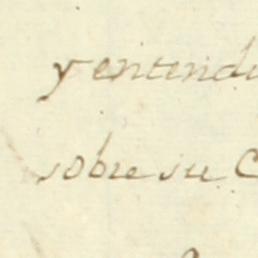 y entendi
sobre su C